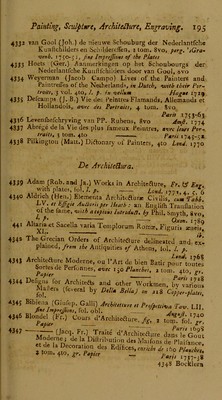 Painting, Sculpture, Architecture, Engraving. 195
4332 van Gool (Joh.) de nieuwe Schouburg der Nederlantsche
Kunstschilders en Schilderessen, 2 tom. 8vo, parg. 'Gra-
venh. 1750-51, fine Impressions of the Plates
4333 Hoets (Ger.) Aanmerkingen op het Schoubourgs der
Nederlantsche Kunstschilders door van Gool, 8vo
4334 Weyerman (Jacob Campo) Lives of the Painters and
Paintresses of the Netherlands, in Dutch, with their Por-
traits, 3 vol. 4to, l. p. in vellum Hague 1729
4335 Descamps (J. B.) Vie des Peintres Flamands, Allemands et
Hollandois, avec des Portraits, 4 tom. 8vo
Paris 1753-63
4336 Levensbeschryving van PP. Rubens, 8vo Amst. 1774
4337 Abregé de la Vie des plus fameux Peintres, avec leurs Por-
traits, 3 tom. 4to Paris 1745-52
4338 Pilkington (Matt.) Dictionary of Painters, 4to Lond. 1770
De Architectura.
4339 Adam (Rob. and Ja.) Works in Architecture, Fr. & Eng.
with plates, fol. l. p. Lond. 1772, 4, 5, 6
4340 Aldrich (Hen.) Elementa Architecturæ Civilis, cum Tabb.
LV. et Effigie Auctoris per Heath: an English Translation
of the same, with a copious Introduct. by Phil. Smyth, 8vo,
l. p. Oxon. 1789
4341 Altaria et Sacella varia Templorum Romæ, Figuris æneis,
fol.
4342 The Grecian Orders of Architecture delineated and ex-
plained, from the Antiquities of Athens, fol. l. p.
Lond. 1768
4343 Architecture Moderne, ou l'Art de bien Batir pour toutes
Sortes de Personnes, avec 150 Planches, 2 tom. 4to, gr.
Papier Paris 1728
4344 Designs for Architects and other Workmen, by various
Masters (several by Della Bella) on 228 Copper-plates,
fol.
4345 Bibiena (Giusep. Galli) Architetture et Prospettive Tav. LII.
fine Impressions, fol. obl. August. 1740
4346 Blondel (Fr.) Cours d'Architecture, fig. 2 tom. fol. gr.
Papier Paris 1698
4347 —— (Jacq. Fr.) Traité d'Architecture dans le Gout
Moderne; de la Distribution des Maisons de Plaisance,
et de la Decoration des Edifices, enrichi de 160 Planches,
2 tom. 4to, gr. Papier Paris 1737-38
4348 Bocklern